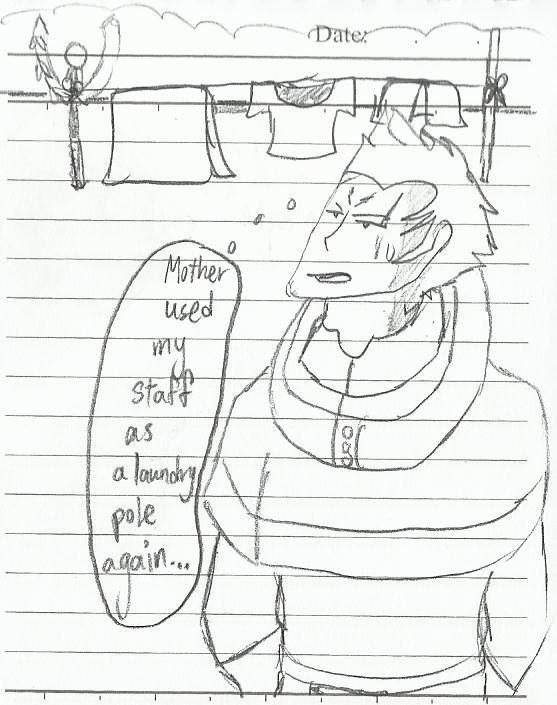 Date:
Mother
used
my
staff
as
a laundry
pole
again...